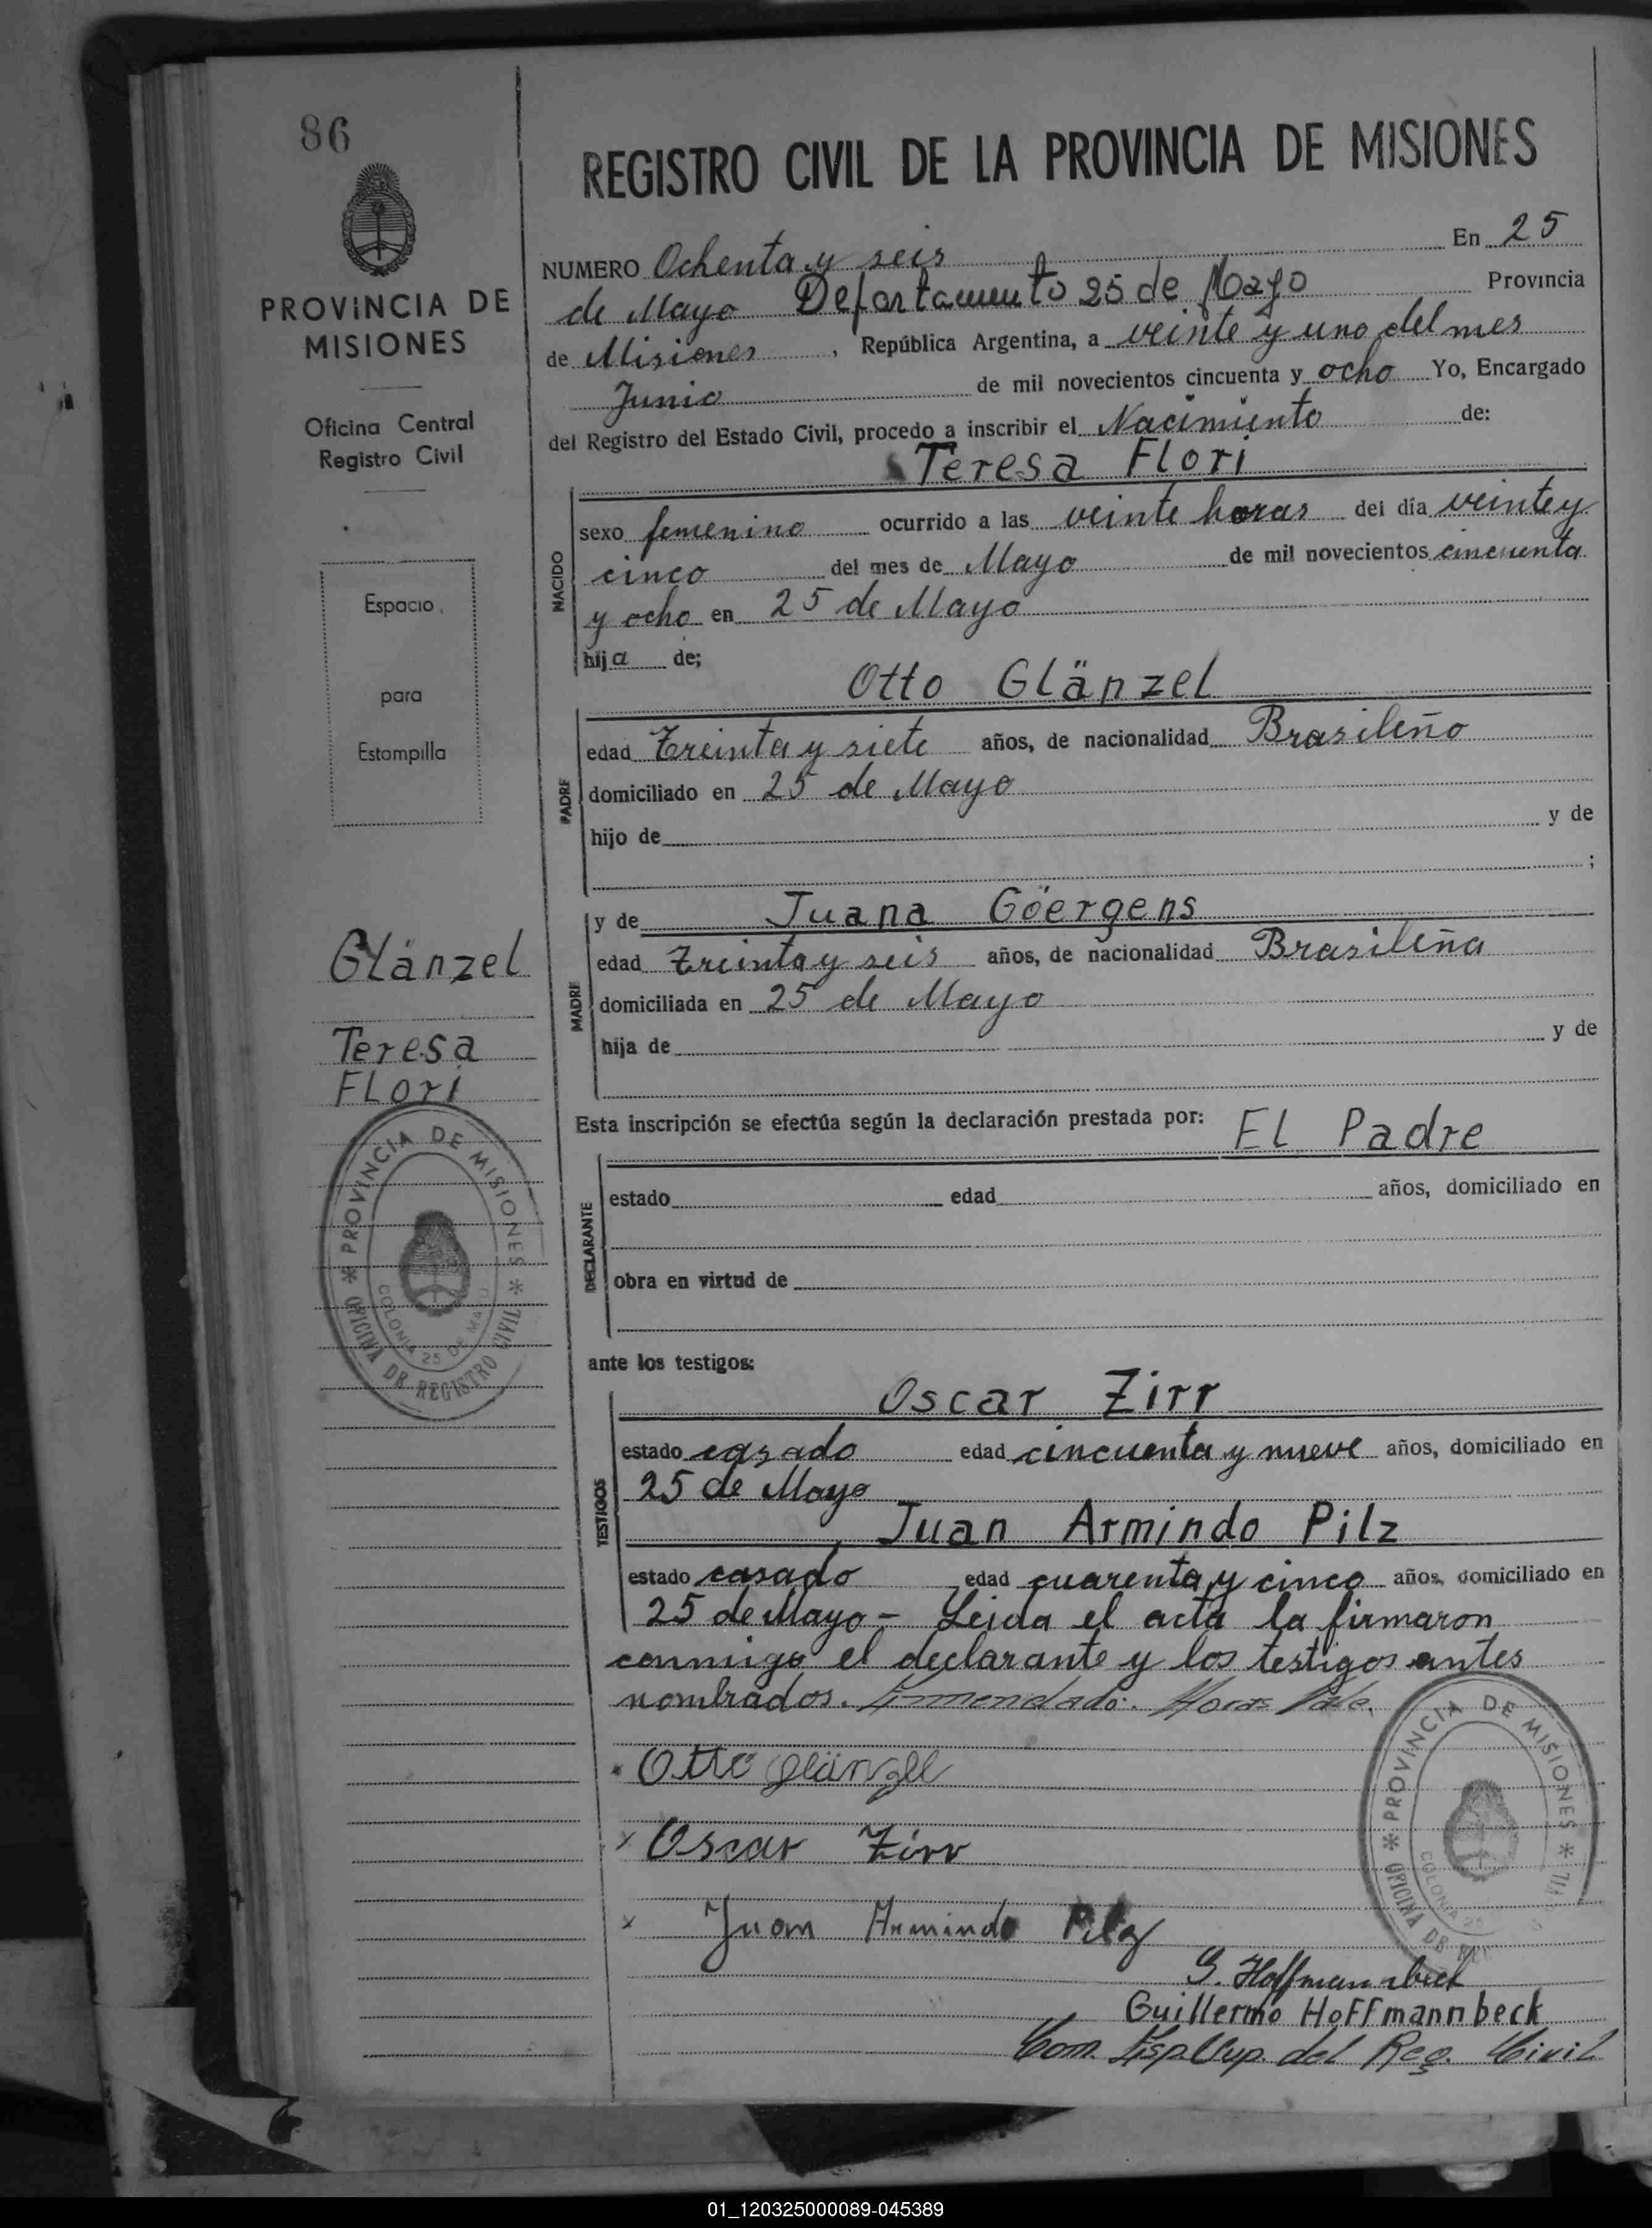 86
REGISTRO CIVIL DE LA PROVINCIA DE MISIONES
PROVINCIA DE
MISIONES
Oficina Central
Registro Civil
Espacio
para
Estampilla
Glänzel
Teresa
Flori
PROVINCIA DE MISIONES * OFICINA DE REGISTRO CIVIL *
COLONIA 25 DE MAYO
NUMERO Ochenta y seis En 25
de Mayo Departamento 25 de Mayo Provincia
de Misiones, República Argentina, a veinte y uno del mes
Junio de mil novecientos cincuenta y ocho Yo, Encargado
del Registro del Estado Civil, procedo a inscribir el Nacimiento de:
Teresa Flori
NACIDO
sexo femenino ocurrido a las veinte horas del día veinte y
cinco del mes de Mayo de mil novecientos cincuenta
y ocho en 25 de Mayo
hija de;
Otto Glänzel
PADRE
edad Treinta y siete años, de nacionalidad Brasileño
domiciliado en 25 de Mayo
hijo de y de
;
MADRE
y de Juana Göergens
edad Treinta y seis años, de nacionalidad Brasileña
domiciliada en 25 de Mayo
hija de y de
Esta inscripción se efectúa según la declaración prestada por: El Padre
DECLARANTE
estado edad años, domiciliado en
obra en virtud de
ante los testigos:
TESTIGOS
Oscar Zirr
estado casado edad cincuenta y nueve años, domiciliado en
25 de Mayo
Juan Armindo Pilz
estado casado edad cuarenta y cinco años, domiciliado en
25 de Mayo - Leida el acta la firmaron
conmigo el declarante y los testigos antes
nombrados. Enmendado: Horas Vale.
Otto Glänzel
x Oscar Zirr
x Juan Armindo Pilz
PROVINCIA DE MISIONES * OFICINA DE
COLONIA 25
G. Hoffmannbeck
Guillermo Hoffmannbeck
del Reg. Civil
01_120325000089-045389